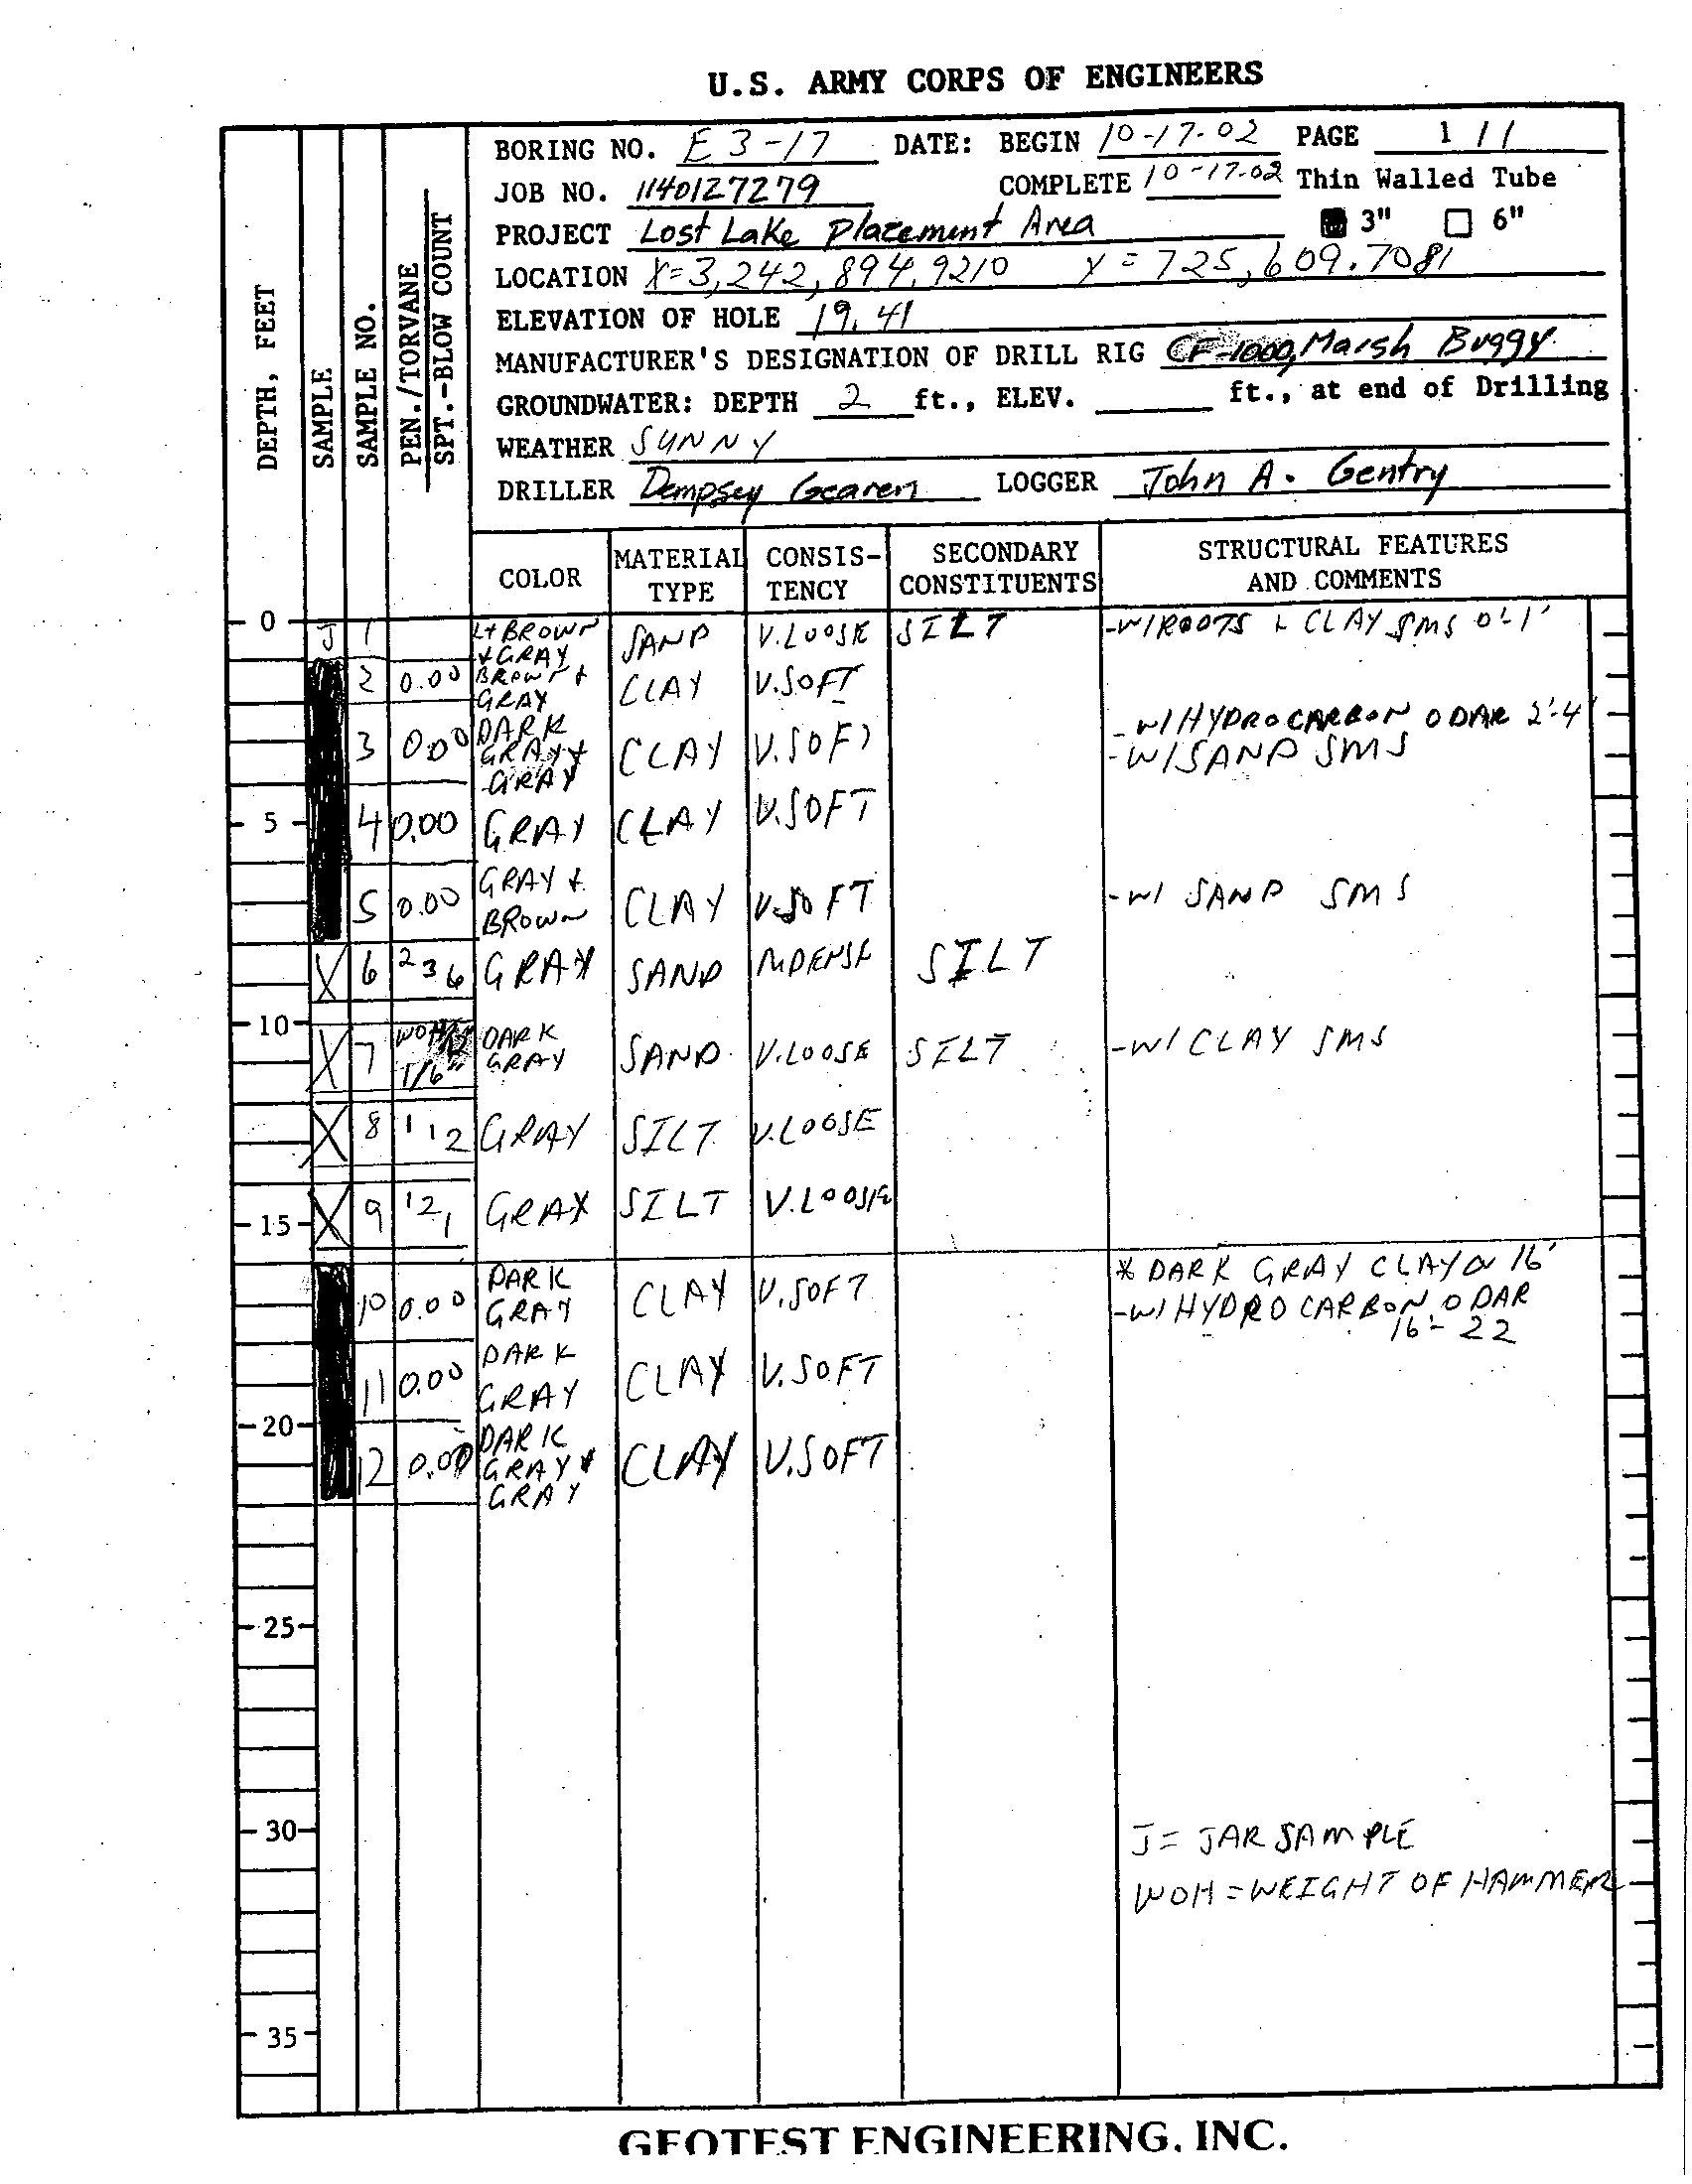 U.S. ARMY CORPS OF ENGINEERS
BORING NO. E3-17 DATE: BEGIN 10-17-02 PAGE 1 / 1
JOB NO. 1140127279 COMPLETE 10-17-02 Thin Walled Tube
PROJECT Lost Lake Placement Area 3" 6"
LOCATION X=3,242,894.9210 Y=725,609.7081
ELEVATION OF HOLE 19.41
MANUFACTURER'S DESIGNATION OF DRILL RIG CF-1000, Marsh Buggy
GROUNDWATER: DEPTH 2 ft., ELEV. ft., at end of Drilling
WEATHER SUNNY
DRILLER Dempsey Gearen LOGGER John A. Gentry
DEPTH, FEET
SAMPLE
SAMPLE NO.
PEN./TORVANE
SPT.-BLOW COUNT
COLOR
MATERIAL TYPE
CONSIS-TENCY
SECONDARY CONSTITUENTS
STRUCTURAL FEATURES AND COMMENTS
0 J 1 LT BROWN + GRAY SAND V.LOOSE SILT -W/ROOTS + CLAY SMS 0'-1'
2 0.00 BROWN + GRAY CLAY V.SOFT
3 0.00 DARK GRAY + GRAY CLAY V.SOFT -W/HYDROCARBON ODAR 2'-4'
-W/SAND SMS
5 4 0.00 GRAY CLAY V.SOFT
5 0.00 GRAY + BROWN CLAY V.SOFT -W/ SAND SMS
X 6 2 3 6 GRAY SAND M DENSE SILT
10 X 7 WOH 1/6" DARK GRAY SAND V.LOOSE SILT -W/CLAY SMS
X 8 1 1 2 GRAY SILT V.LOOSE
15 X 9 1 2 1 GRAY SILT V.LOOSE
* DARK GRAY CLAY @ 16'
10 0.00 DARK GRAY CLAY V.SOFT -W/HYDROCARBON ODAR
16'-22
11 0.00 DARK GRAY CLAY V.SOFT
20 12 0.00 DARK GRAY + GRAY CLAY V.SOFT
25
30 J = JAR SAMPLE
WOH = WEIGHT OF HAMMER
35
GEOTEST ENGINEERING, INC.